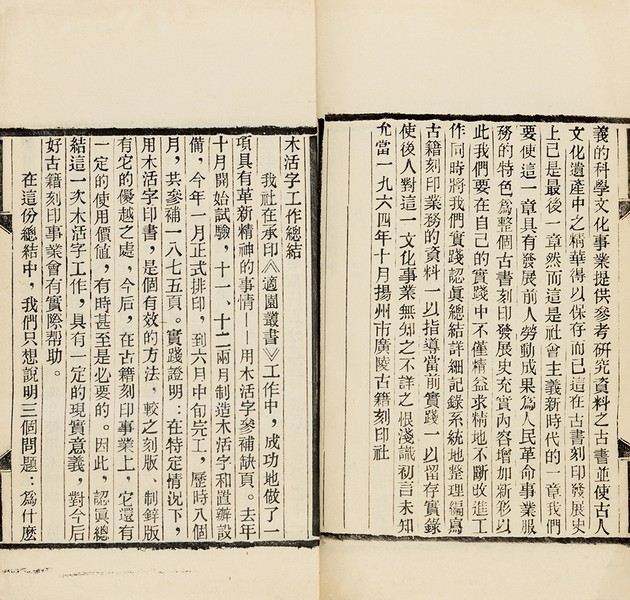 義的科學文化事業提供參考研究資料之古書並使古人
文化遺產中之精華得以保存而已這在古書刻印發展史
上已是最後一章然而這是社會主義新時代的一章我們
要使這一章具有發展前人勞動成果為人民革命事業服
務的特色為整個古書刻印發展史充實內容增加新彩以
此我們要在自己的實踐中不僅精益求精地不斷改進工
作同時將我們實踐認眞總結詳細記錄系統地整理編寫
古籍刻印業務的資料一以指導當前實踐一以留存實錄
使後人對這一文化事業無知之不詳之恨淺識初言未知
允當一九六四年十月揚州市廣陵古籍刻印社
木活字工作總結
我社在承印《適園叢書》工作中，成功地做了一
項具有革新精神的事情——用木活字參補缺頁。去年
十月開始試驗，十一、十二兩月制造木活字和置辦設
備，今年一月正式排印，到六月中旬完工，歷時八個
月，共參補一八七五頁。實踐證明：在特定情況下，
用木活字印書，是個有效的方法，較之刻版、制鋅版
有它的優越之處，今后，在古籍刻印事業上，它還有
一定的使用價值，有時甚至是必要的。因此，認眞總
結這一次木活字工作，具有一定的現實意義，對今后
好古籍刻印事業會有實際帮助。
在這份總結中，我們只想說明三個問題：為什麽